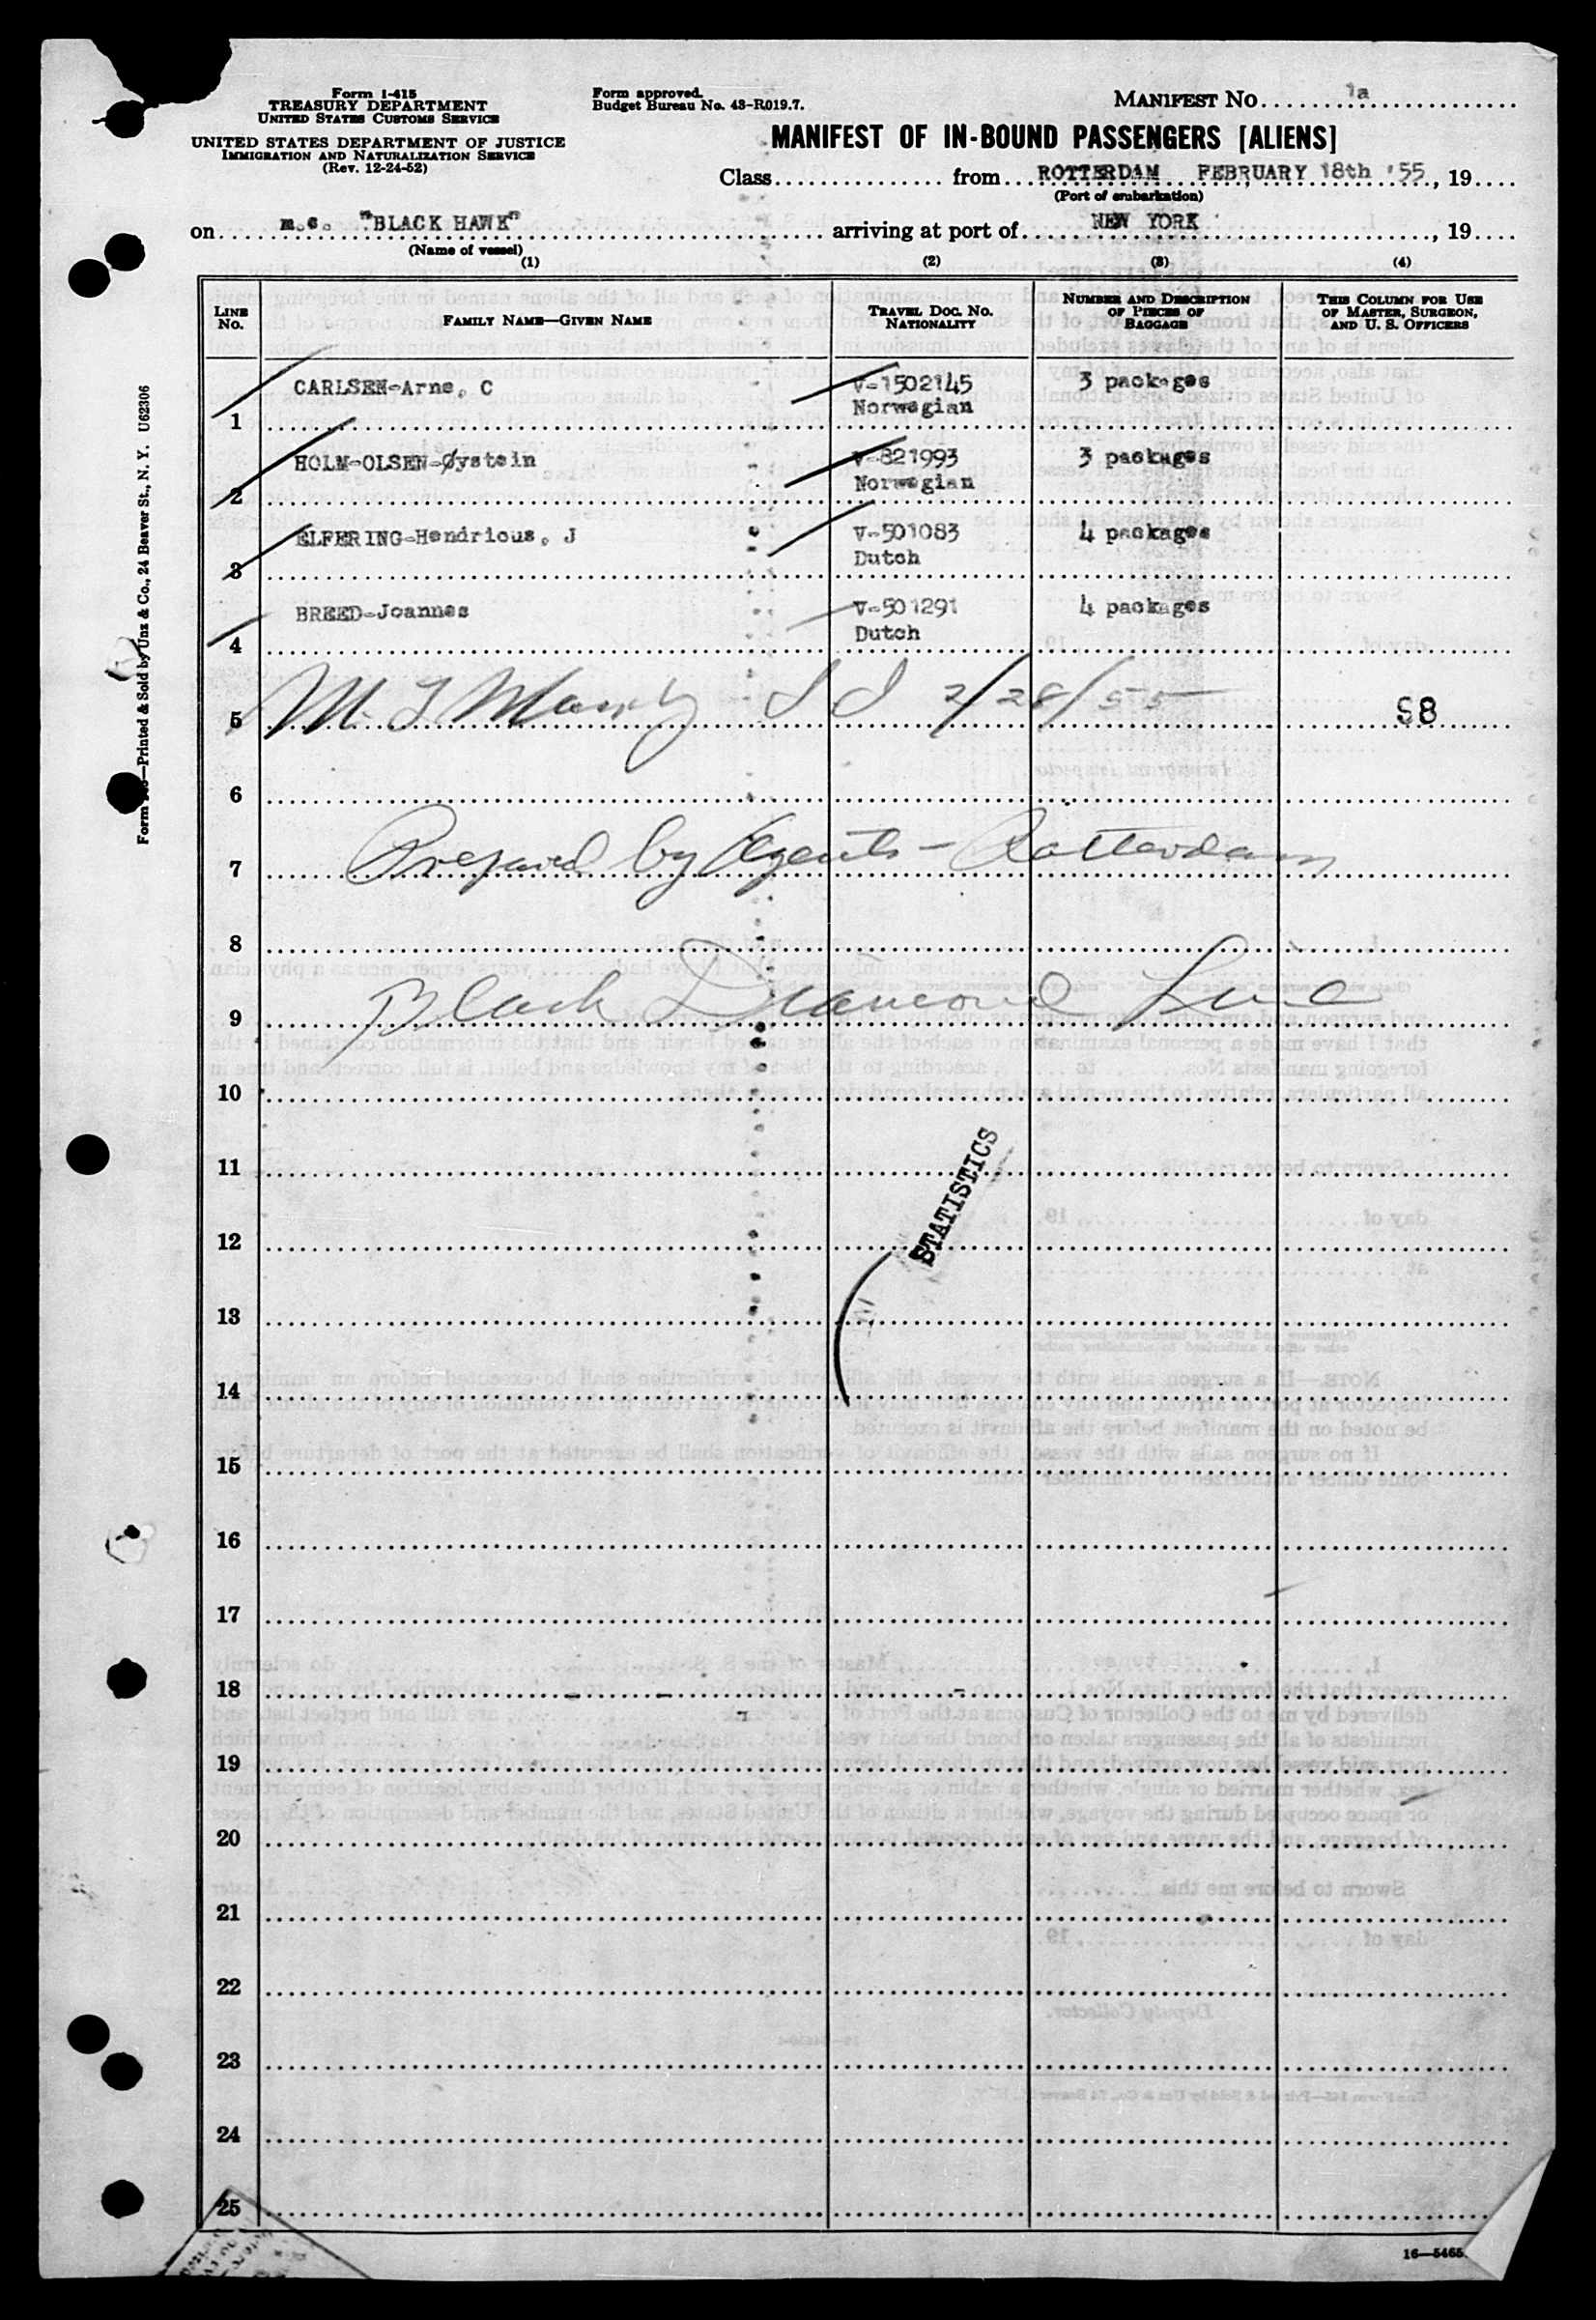 Form I-415
TREASURY DEPARTMENT
UNITED STATES CUSTOMS SERVICE
UNITED STATES DEPARTMENT OF JUSTICE
IMMIGRATION AND NATURALIZATION SERVICE
(Rev. 12-24-52)
Form approved.
Budget Bureau No. 43-R019.7.
MANIFEST No. 1a
MANIFEST OF IN-BOUND PASSENGERS [ALIENS]
Class from ROTTERDAM FEBRUARY 18th '55, 19
(Port of embarkation)
on m.s. "BLACK HAWK" arriving at port of NEW YORK, 19
(Name of vessel)
(1) (2) (3) (4)
LINE No.
FAMILY NAME—GIVEN NAME
TRAVEL DOC. NO. NATIONALITY
NUMBER AND DESCRIPTION OF PIECES OF BAGGAGE
THIS COLUMN FOR USE OF MASTER, SURGEON, AND U. S. OFFICERS
1 CARLSEN-Arne, C V-1502145 Norwegian 3 packages
2 HOLM-OLSEN-Øystein V-821993 Norwegian 3 packages
3 ELFERING-Hendricus, J V-501083 Dutch 4 packages
4 BREED-Joannes V-501291 Dutch 4 packages
5 2/28/55 S8
6
7 Prepared by Agents - Rotterdam
8
9 Black Diamond Line
10
11
STATISTICS
12
13
14
15
16
17
18
19
20
21
22
23
24
25
16—5465
Printed & Sold by Unz & Co., 24 Beaver St., N. Y. U62306